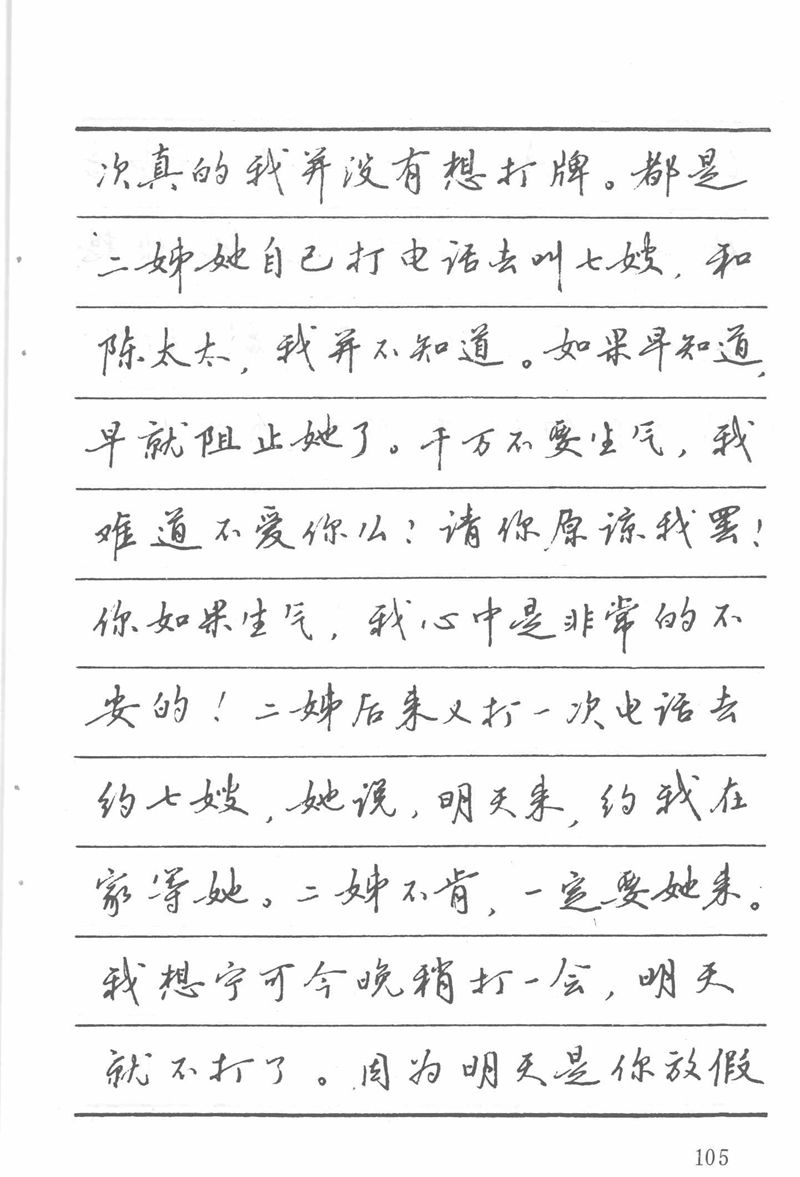 次真的我并没有想打牌。都是
二姊她自己打电话去叫七嫂，和
陈太太，我并不知道。如果早知道，
早就阻止她了。千万不要生气，我
难道不爱你么！请你原谅我罢！
你如果生气，我心中是非常的不
安的！二姊后来又打一次电话去
约七嫂，她说，明天来，约我在
家等她。二姊不肯，一定要她来。
我想宁可今晚稍打一会，明天
就不打了。因为明天是你放假
105